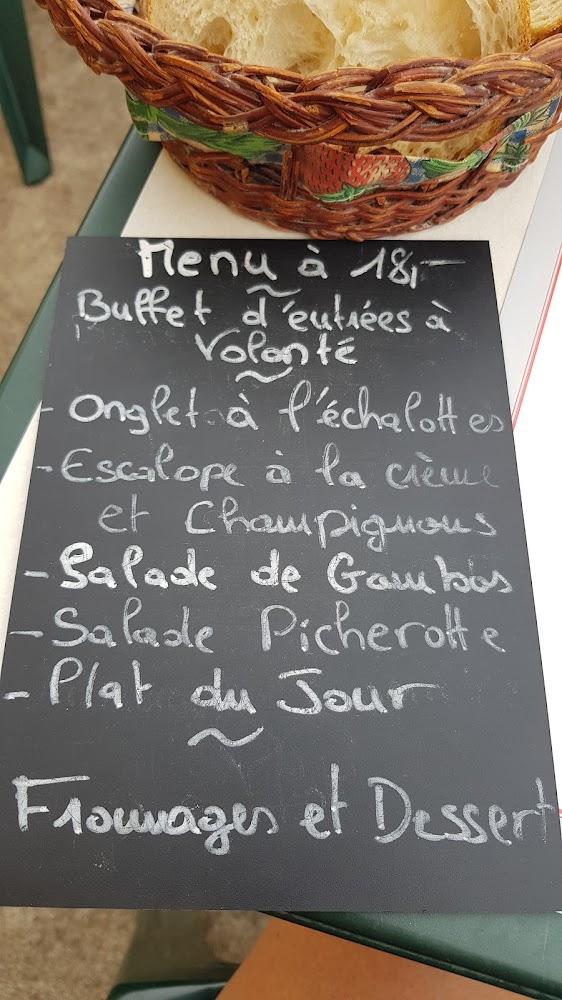 Menu à 18,-
Buffet d'entrées à
Volonté
- Onglet à l'échalottes
- Escalope à la crème
et Champignons
- Salade de Gambas
- Salade Picherotte
- Plat du Jour
Fromages et Dessert